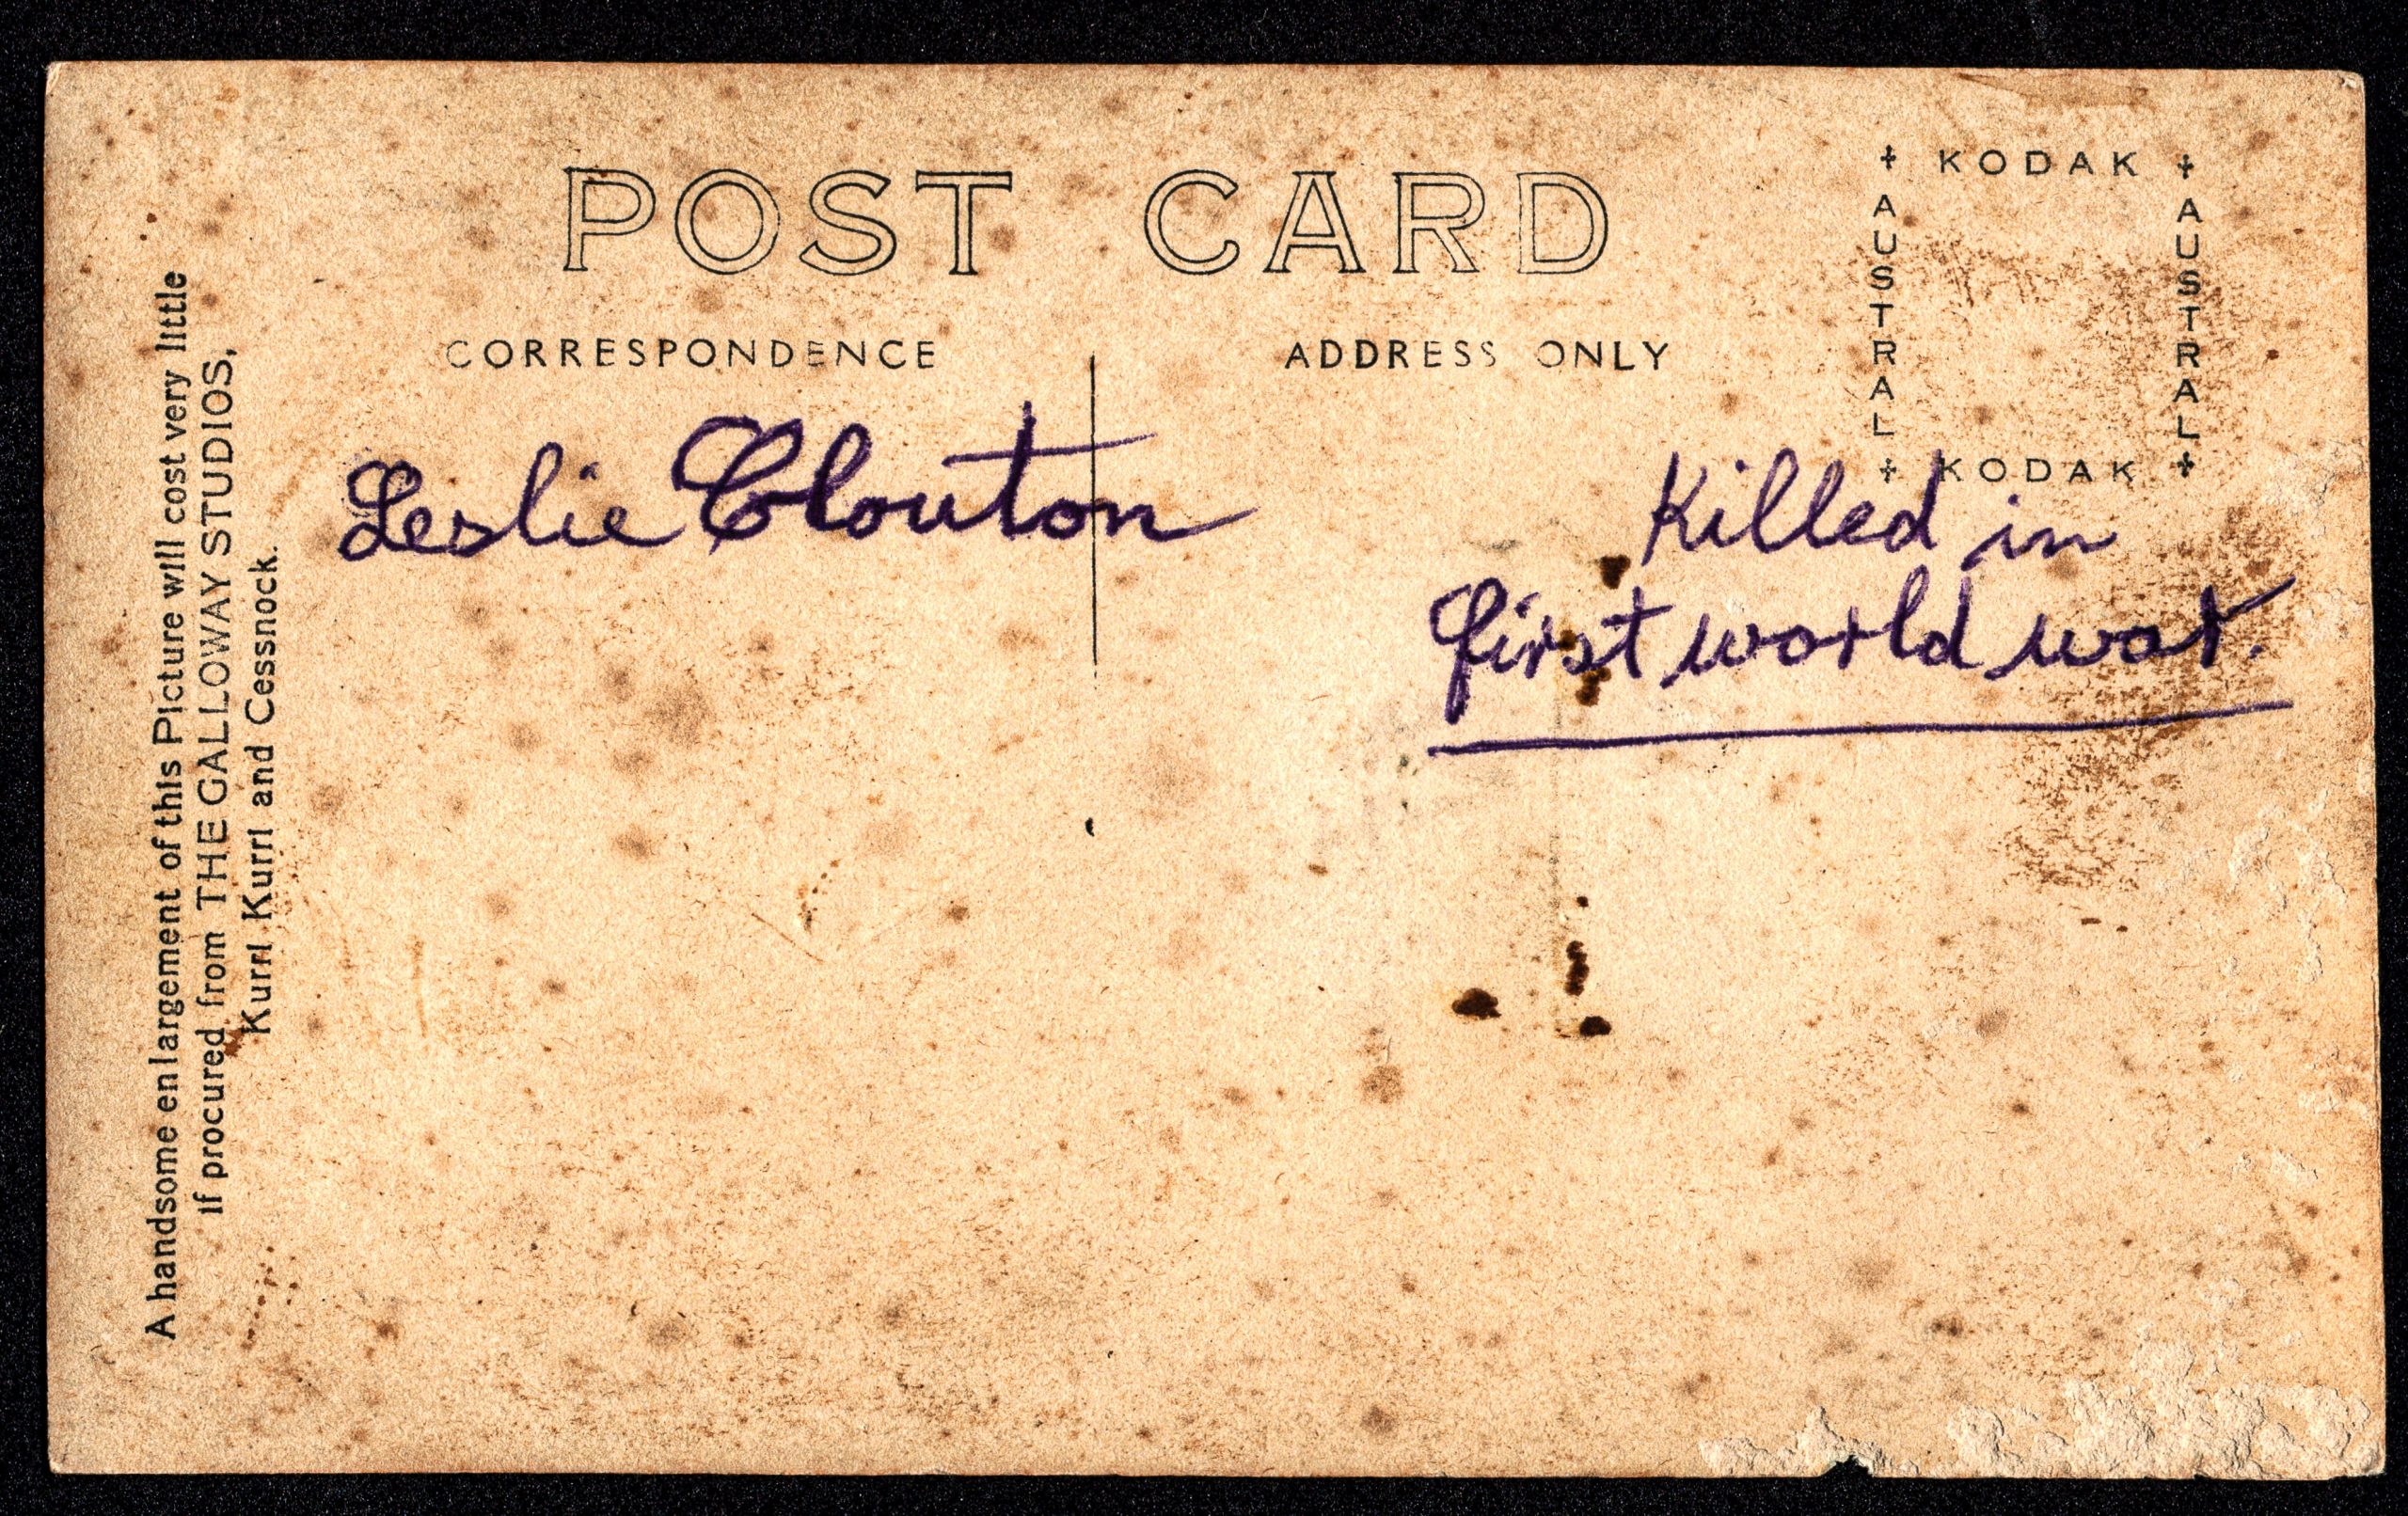 POST CARD
CORRESPONDENCE
ADDRESS ONLY
KODAK
AUSTRAL
AUSTRAL
KODAK
Leslie Clouton
Killed in
first world war.
A handsome enlargement of this Picture will cost very little
If procured from THE GALLOWAY STUDIOS,
Kurri Kurri and Cessnock.